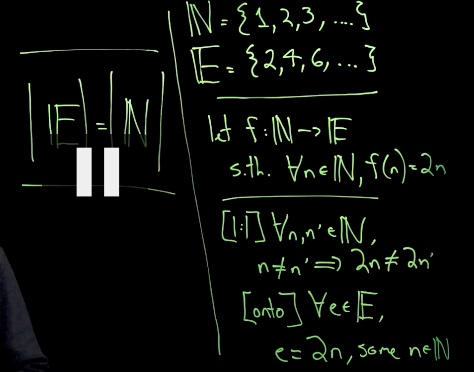 |𝔼| = |ℕ|
ℕ = {1,2,3, ....}
𝔼 = {2,4,6, ...}
let f: ℕ → 𝔼
s.th. ∀n∈ℕ, f(n) = 2n
[1:1] ∀n,n' ∈ ℕ,
n ≠ n' ⇒ 2n ≠ 2n'
[onto] ∀e∈𝔼,
e = 2n, some n∈ℕ